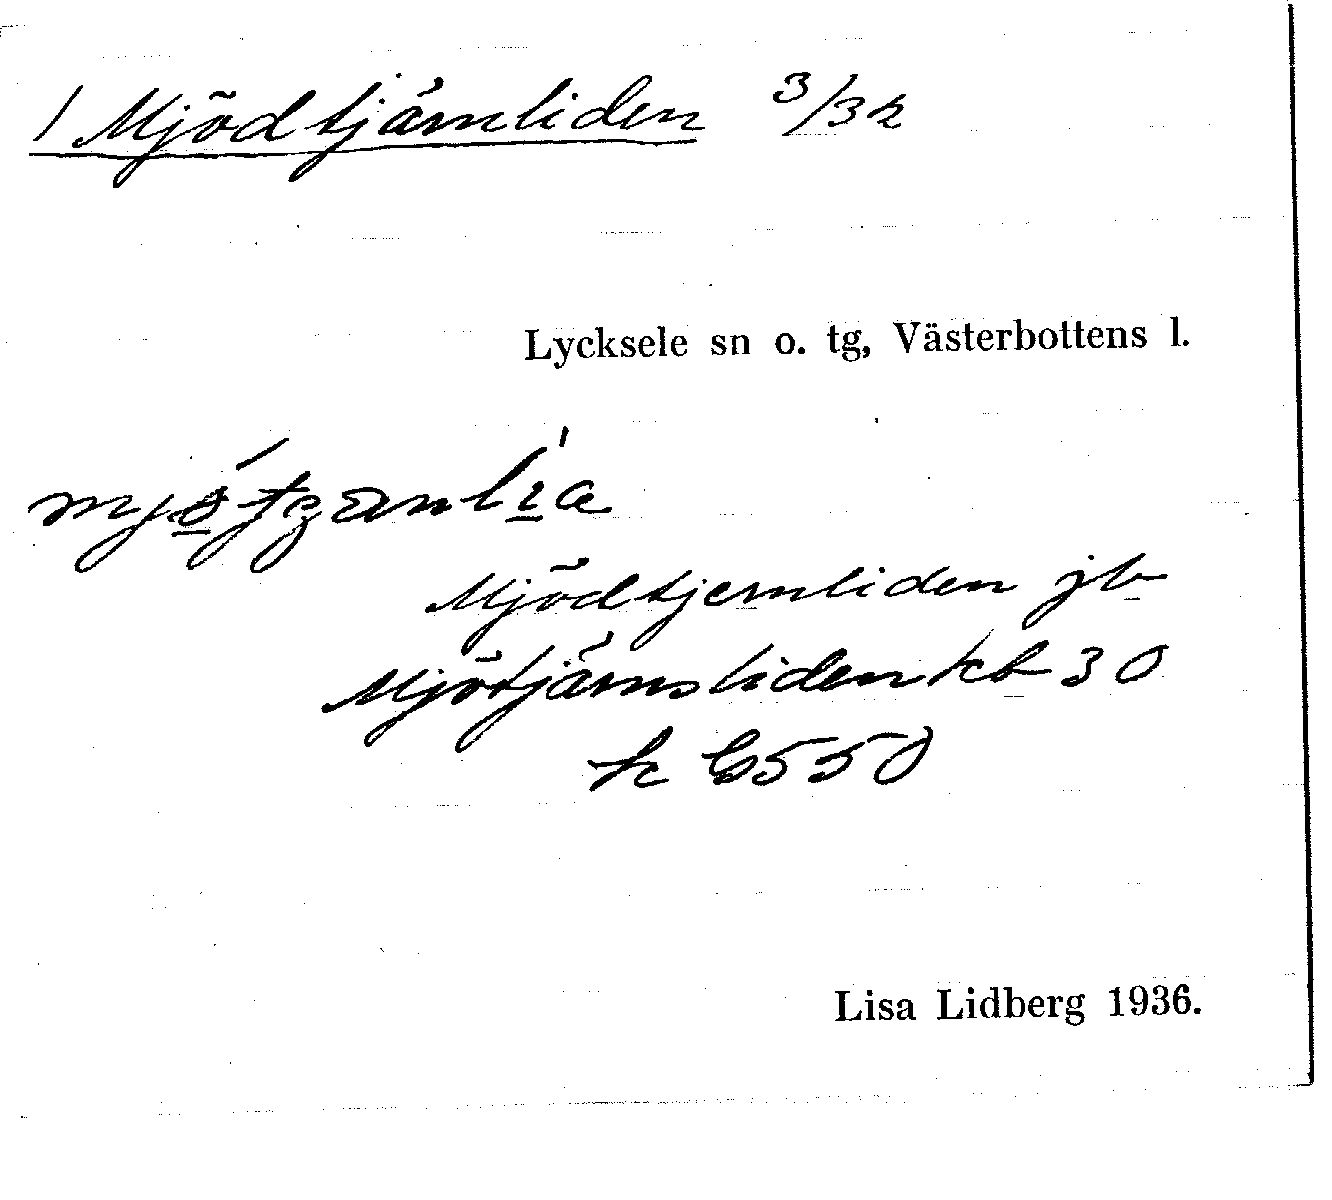 1 Mjödtjärnliden 3/32
Lycksele sn o. tg, Västerbottens l.
Mjödtjernliden jb
Mjötjärnsliden kb 30
k 6550
Lisa Lidberg 1936.